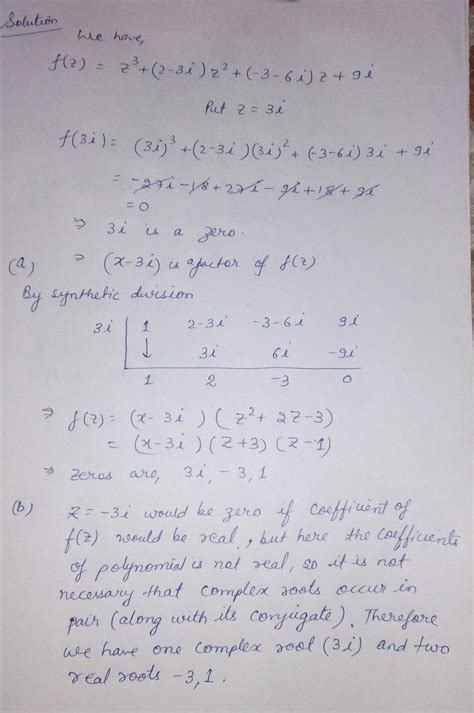 Solution
We have,
f(z) = z³+(2-3i)z²+(-3-6i)z+9i
Put z = 3i
f(3i) = (3i)³+(2-3i)(3i)²+(-3-6i)3i+9i
= -27i-18+27i-9i+18+9i
=0
⇒ 3i is a zero.
(a) ⇒ (x-3i) is a factor of f(z)
By synthetic division
3i | 1 2-3i -3-6i 9i
↓ 3i 6i -9i
1 2 -3 0
⇒ f(z) = (x-3i)(z²+2z-3)
= (x-3i)(z+3)(z-1)
⇒ zeros are, 3i, -3, 1
(b) z = -3i would be zero if coefficient of
f(z) would be real, but here the coefficients
of polynomial is not real, so it is not
necessary that complex roots occur in
pair (along with its conjugate). Therefore
we have one complex root (3i) and two
real roots -3,1.